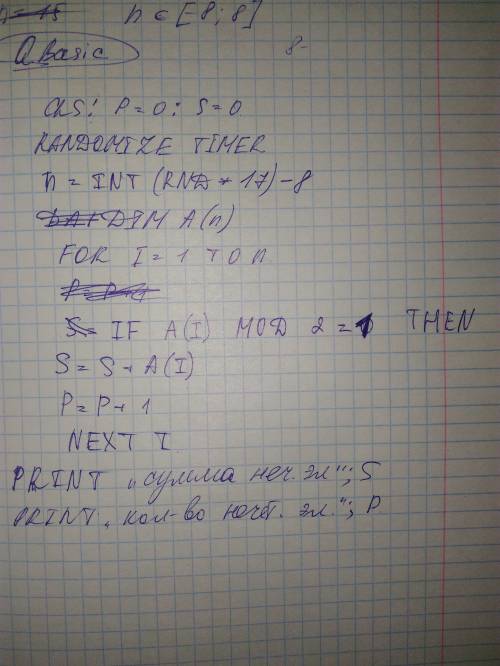 n ∈ [-8; 8]
QBasic
8-
CLS: P=0: S=0
RANDOMIZE TIMER
n = INT (RND * 17) - 8
DIM A(n)
FOR I = 1 TO n
IF A(I) MOD 2 = 1 THEN
S = S + A(I)
P = P + 1
NEXT I
PRINT „сумма неч. эл“; S
PRINT „кол-во нечёт. эл.“; P